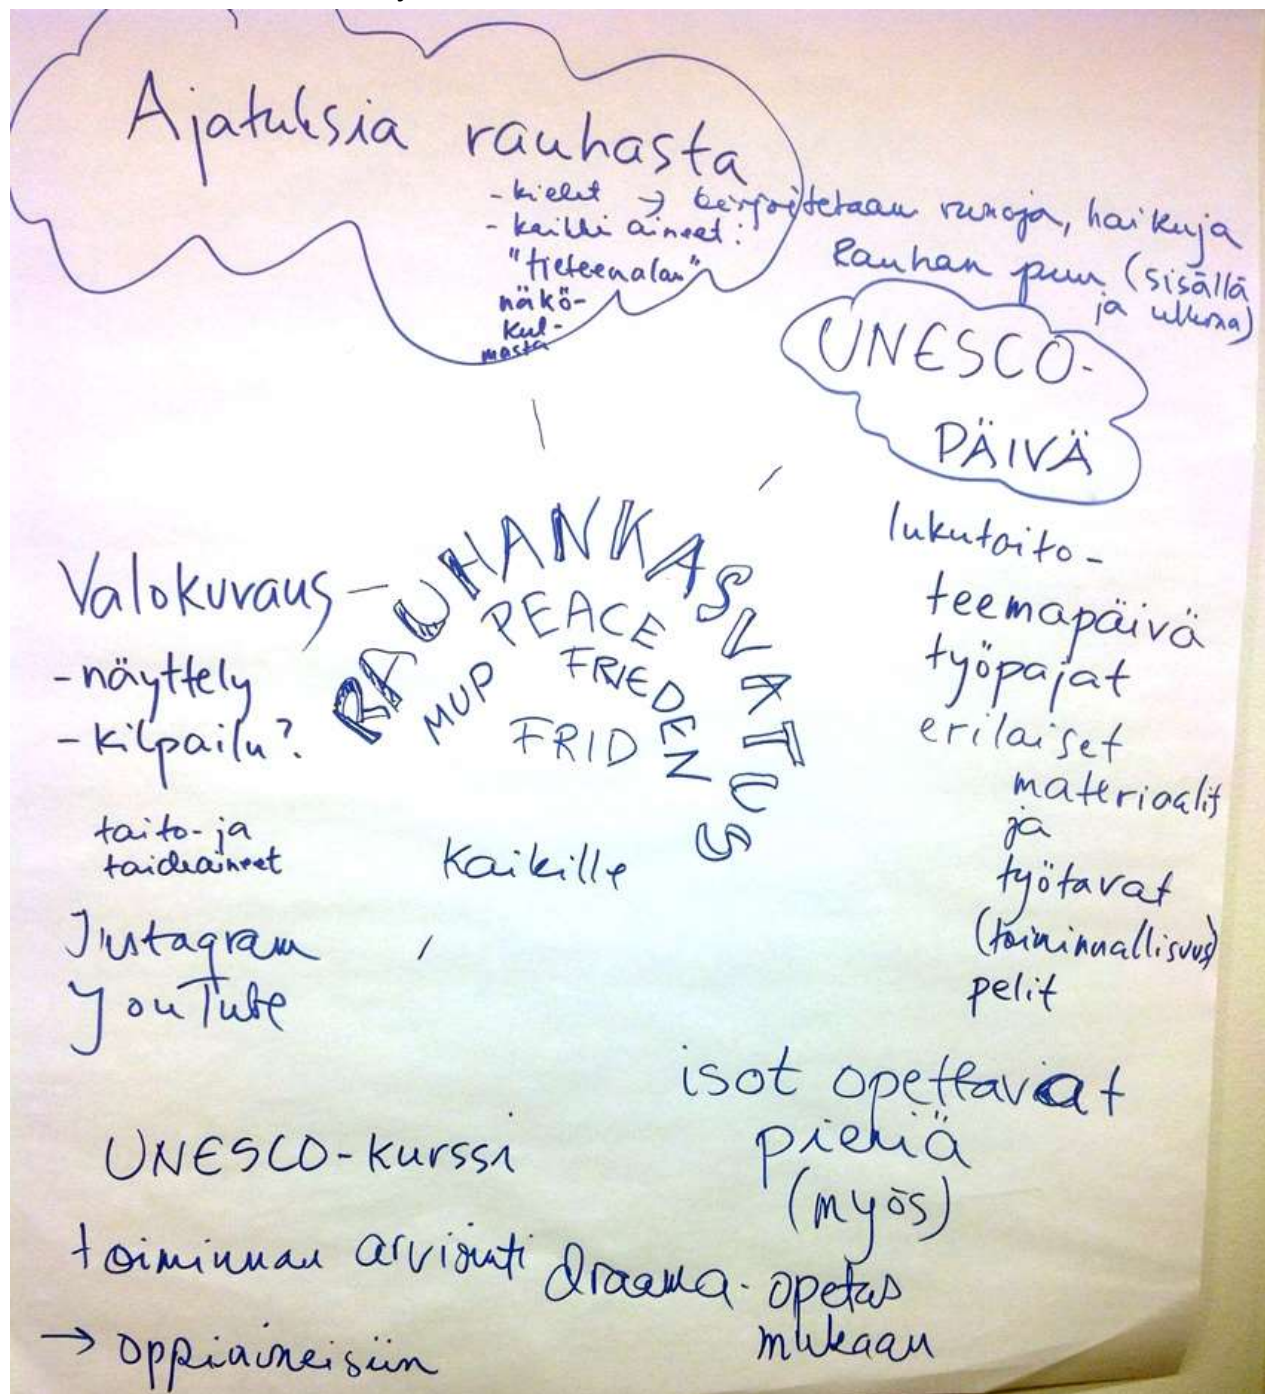 Ajatuksia rauhasta
- kielet → kirjoitetaan runoja, haikuja
- kaikki aineet:
"tieteenalan"
näkö-
kul-
masta
Rauhan puu (sisällä
ja ulkona)
UNESCO-
PÄIVÄ
lukutaito-
teemapäivä
työpajat
erilaiset
materiaalit
ja
työtavat
(toiminnallisuus)
pelit
RAUHANKASVATUS
PEACE
MUP
FRIEDEN
FRID
Kaikille
Valokuvaus
- näyttely
- kilpailu?
taito- ja
taideaineet
Instagram
YouTube
isot opettavat
pieniä
(myös)
UNESCO-kurssi
toiminnan arviointi
→ oppiaineisiin
draama-opetus
mukaan